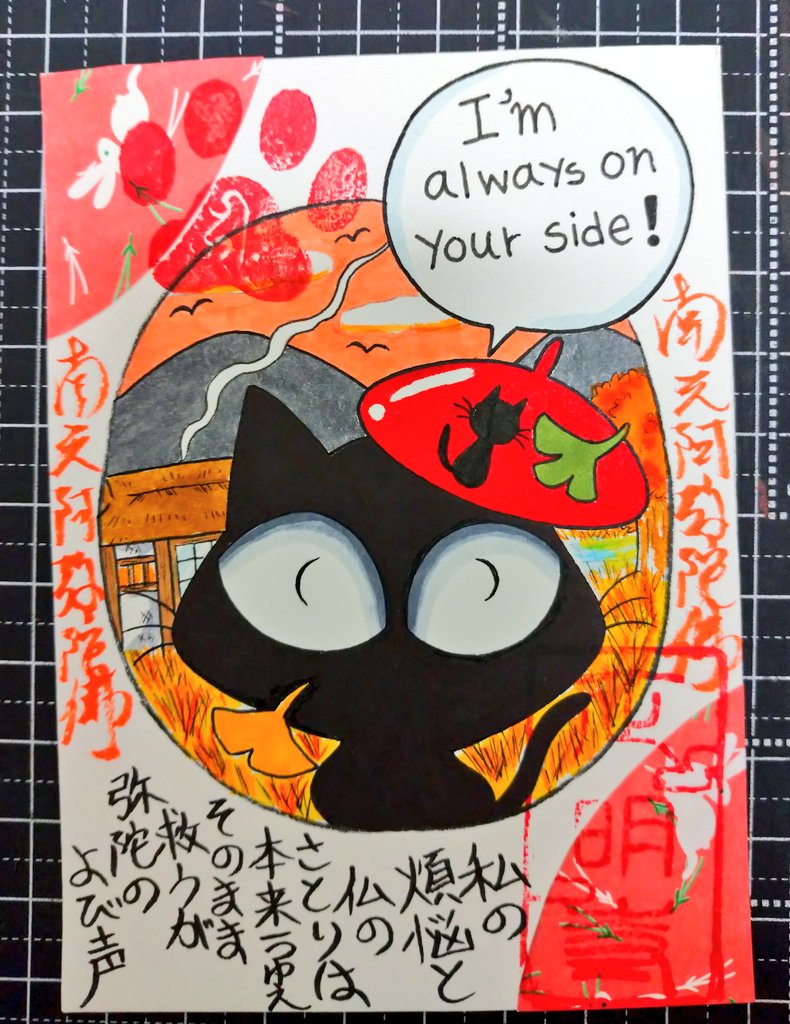 I'm
always on
your side!
南无阿弥陀佛
南无阿弥陀佛
私の
煩悩と
仏の
さとりは
本来一つゆえ
そのまま
救うが
弥陀の
よび声